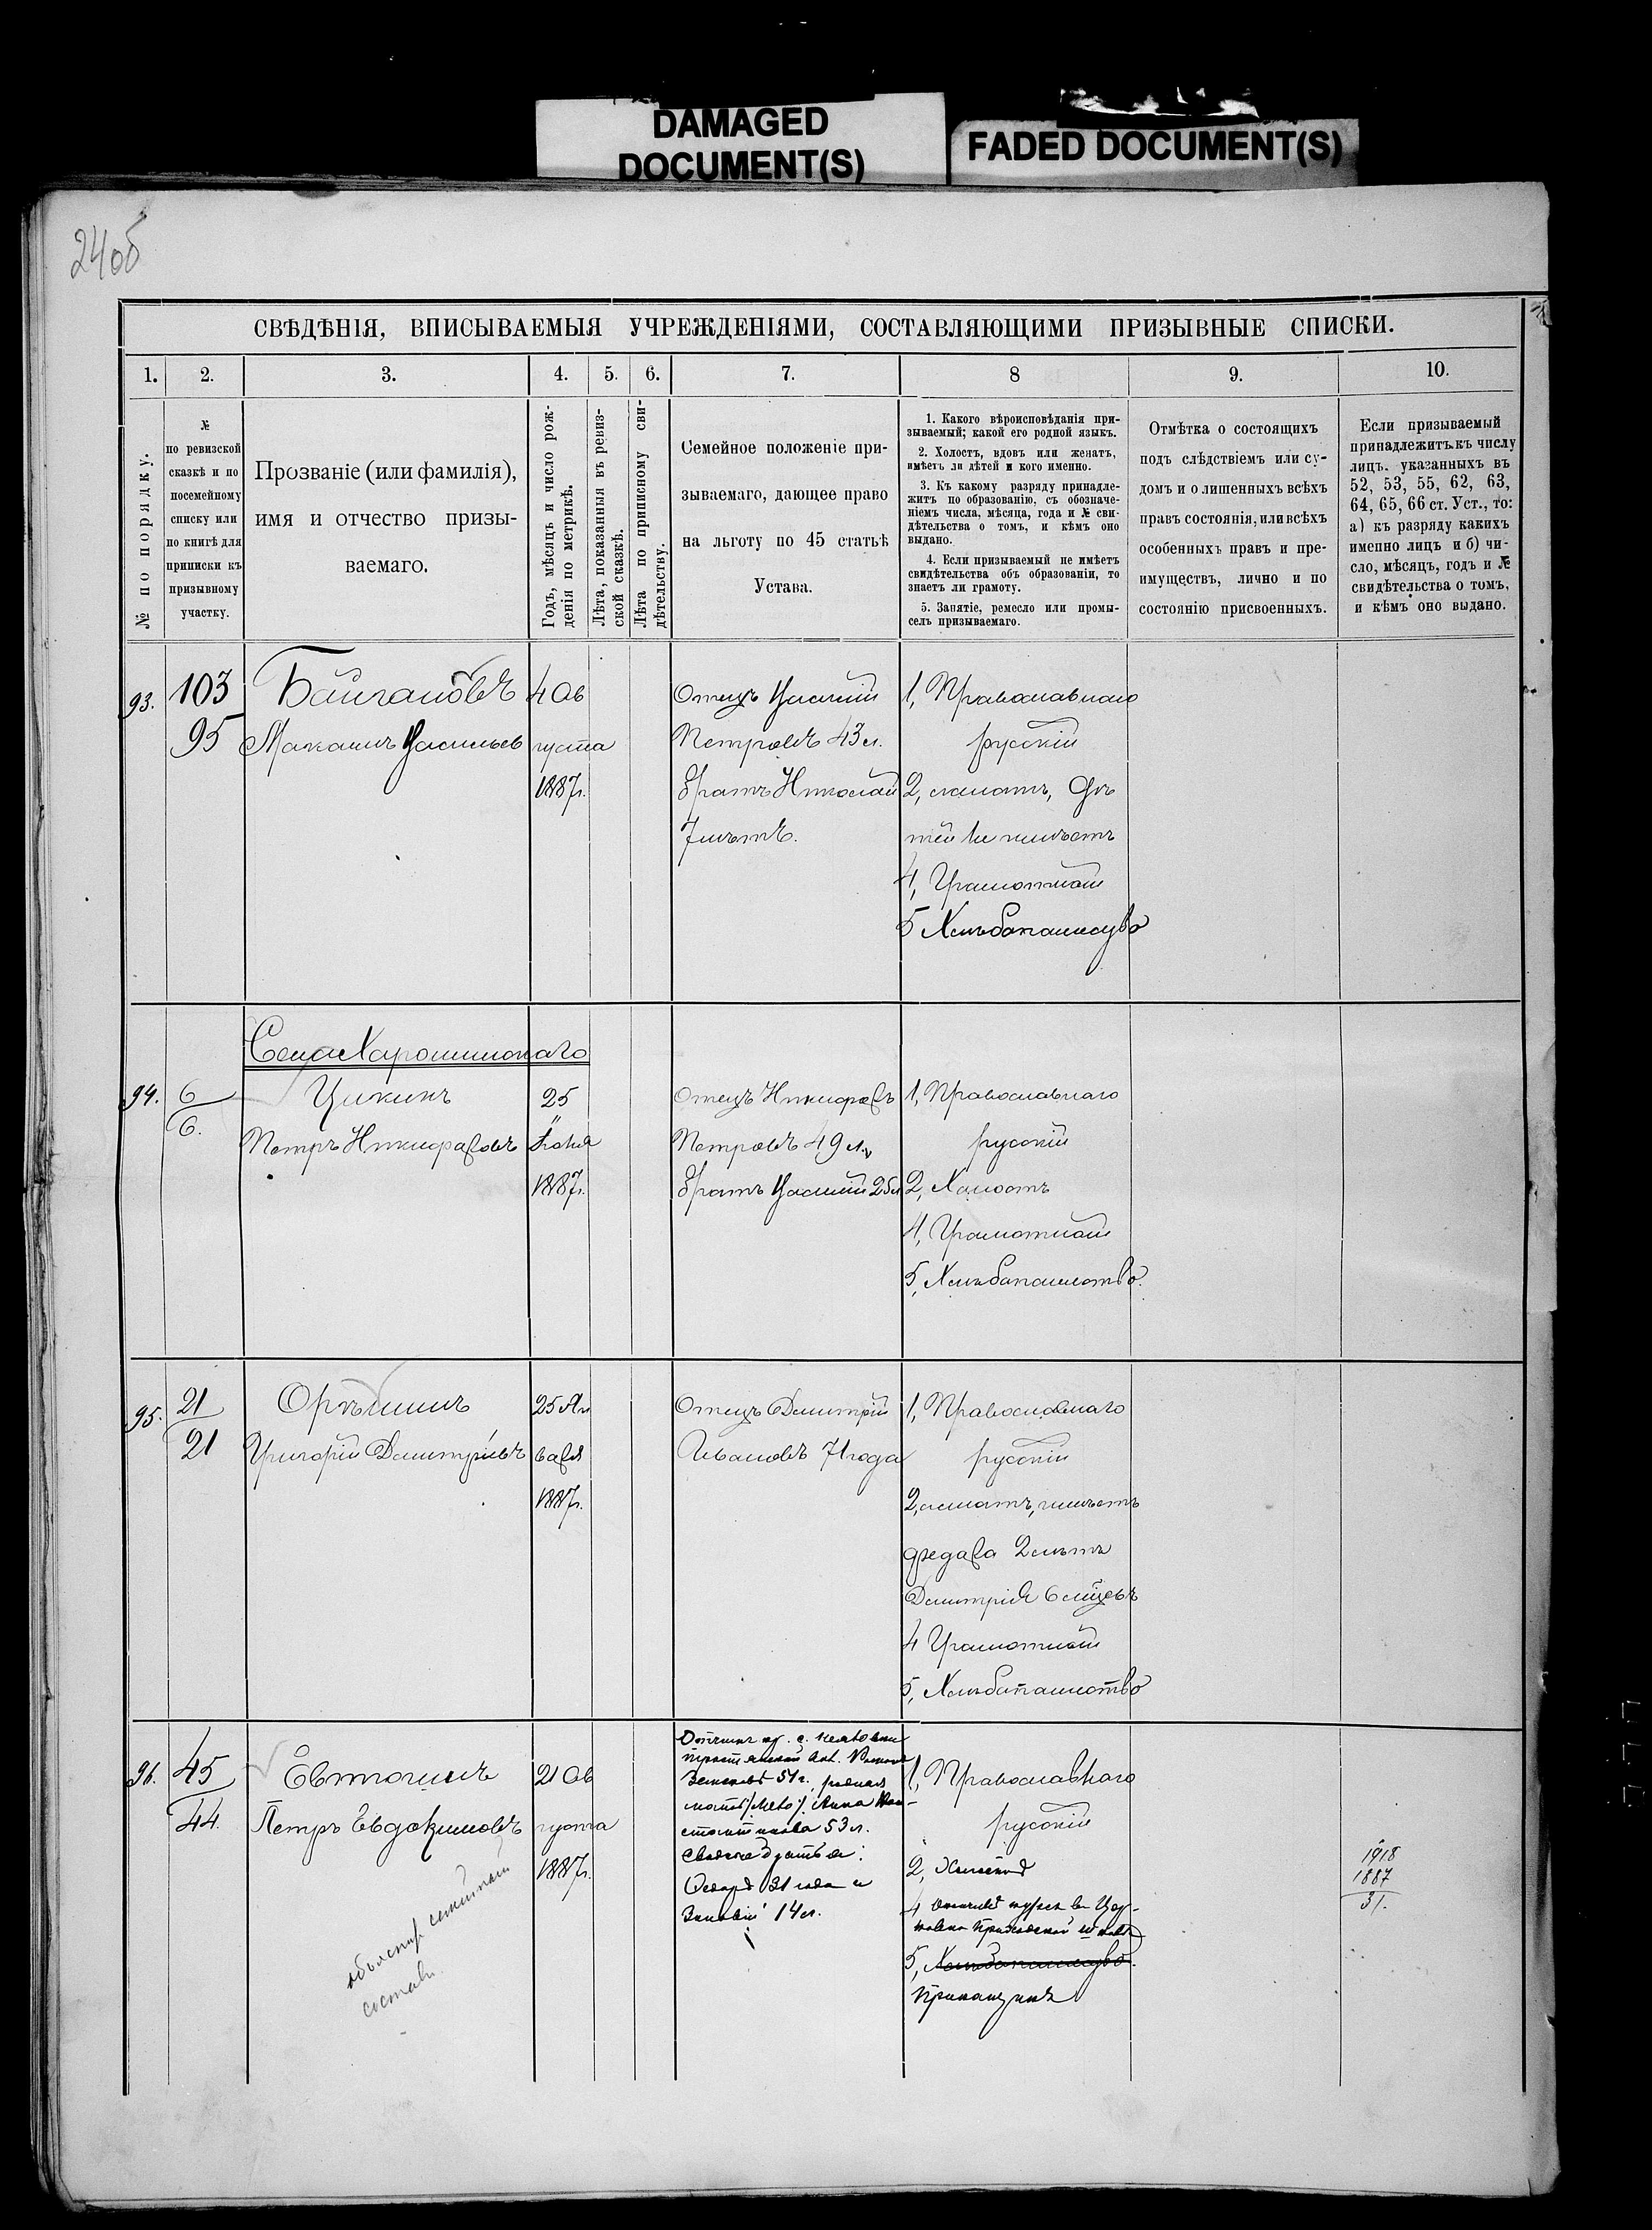 DAMAGED
DOCUMENT(S)
FADED DOCUMENT(S)
24об
СВѢДѢНІЯ, ВПИСЫВАЕМЫЯ УЧРЕЖДЕНІЯМИ, СОСТАВЛЯЮЩИМИ ПРИЗЫВНЫЕ СПИСКИ.
1. 2. 3. 4. 5. 6. 7. 8 9. 10.
№ по порядку.
№
по ревизской
сказкѣ и по
посемейному
списку или
по книгѣ для
приписки къ
призывному
участку.
Прозваніе (или фамилія),
имя и отчество призы-
ваемаго.
Годъ, мѣсяцъ и число рож-
денія по метрикѣ.
Лѣта, показанныя въ ревиз-
ской сказкѣ.
Лѣта по приписному сви-
дѣтельству.
Семейное положеніе при-
зываемаго, дающее право
на льготу по 45 статьѣ
Устава.
1. Какого вѣроисповѣданія при-
зываемый; какой его родной языкъ.
2. Холостъ, вдовъ или женатъ,
имѣетъ ли дѣтей и кого именно.
3. Къ какому разряду принадле-
житъ по образованію, съ обозначе-
ніемъ числа, мѣсяца, года и № сви-
дѣтельства о томъ, и кѣмъ оно
выдано.
4. Если призываемый не имѣетъ
свидѣтельства объ образованіи, то
знаетъ ли грамоту.
5. Занятіе, ремесло или промы-
селъ призываемаго.
Отмѣтка о состоящихъ
подъ слѣдствіемъ или су-
домъ и о лишенныхъ всѣхъ
правъ состоянія, или всѣхъ
особенныхъ правъ и пре-
имуществъ, лично и по
состоянію присвоенныхъ.
Если призываемый
принадлежитъ къ числу
лицъ, указанныхъ въ
52, 53, 55, 62, 63,
64, 65, 66 ст. Уст., то:
а) къ разряду какихъ
именно лицъ и б) чи-
сло, мѣсяцъ, годъ и №
свидѣтельства о томъ,
и кѣмъ оно выдано.
93.
103
95
Байгановъ
Васильев
4 Ав
густа
1887г.
Отецъ Василій
Петровъ 43 л.
братъ Николай
7 лѣтъ.
1, Православнаго
русскій
2, женатъ, дѣ
тей не имѣетъ
4, Грамотный
5 Хлѣбопашество
Села
94.
6
6.
Цикинъ
Петръ Никифоровъ
25
Іюня
1887г.
Отецъ Никифоръ
Петровъ 49 л.,
братъ Василій 25л
1, Православнаго
русскій
2, Холостъ
4, Грамотный
5, Хлѣбопашество.
95.
21
21
Орѣшинъ
Григорій Дмитріевъ
25 Ян
варя
1887г.
Отецъ Дмитрій
Ивановъ 71 года
1, Православнаго
русскій
2, женатъ, имѣетъ
Федора 2 лѣтъ
Дмитрія 6 мѣсцевъ
4 Грамотный
5, Хлѣбопашество
96.
45
44.
Евтюгинъ
Петръ Евдокимовъ
21 Ав
густа
1887г.
объяснить семейный
составъ
Отчимъ кр. с.
Земсковъ 51 г., родная
мать /его/. Анна Кон-
стантинова 53 л.
братья:
31 года и
Зиновій 14 л.
1, Православнаго
русскій
2, Холостой
4 окончилъ курсъ въ Цер-
ковно Приходской школѣ
5, Хлѣбопашество.
Приказчикъ
1918
1887
31.